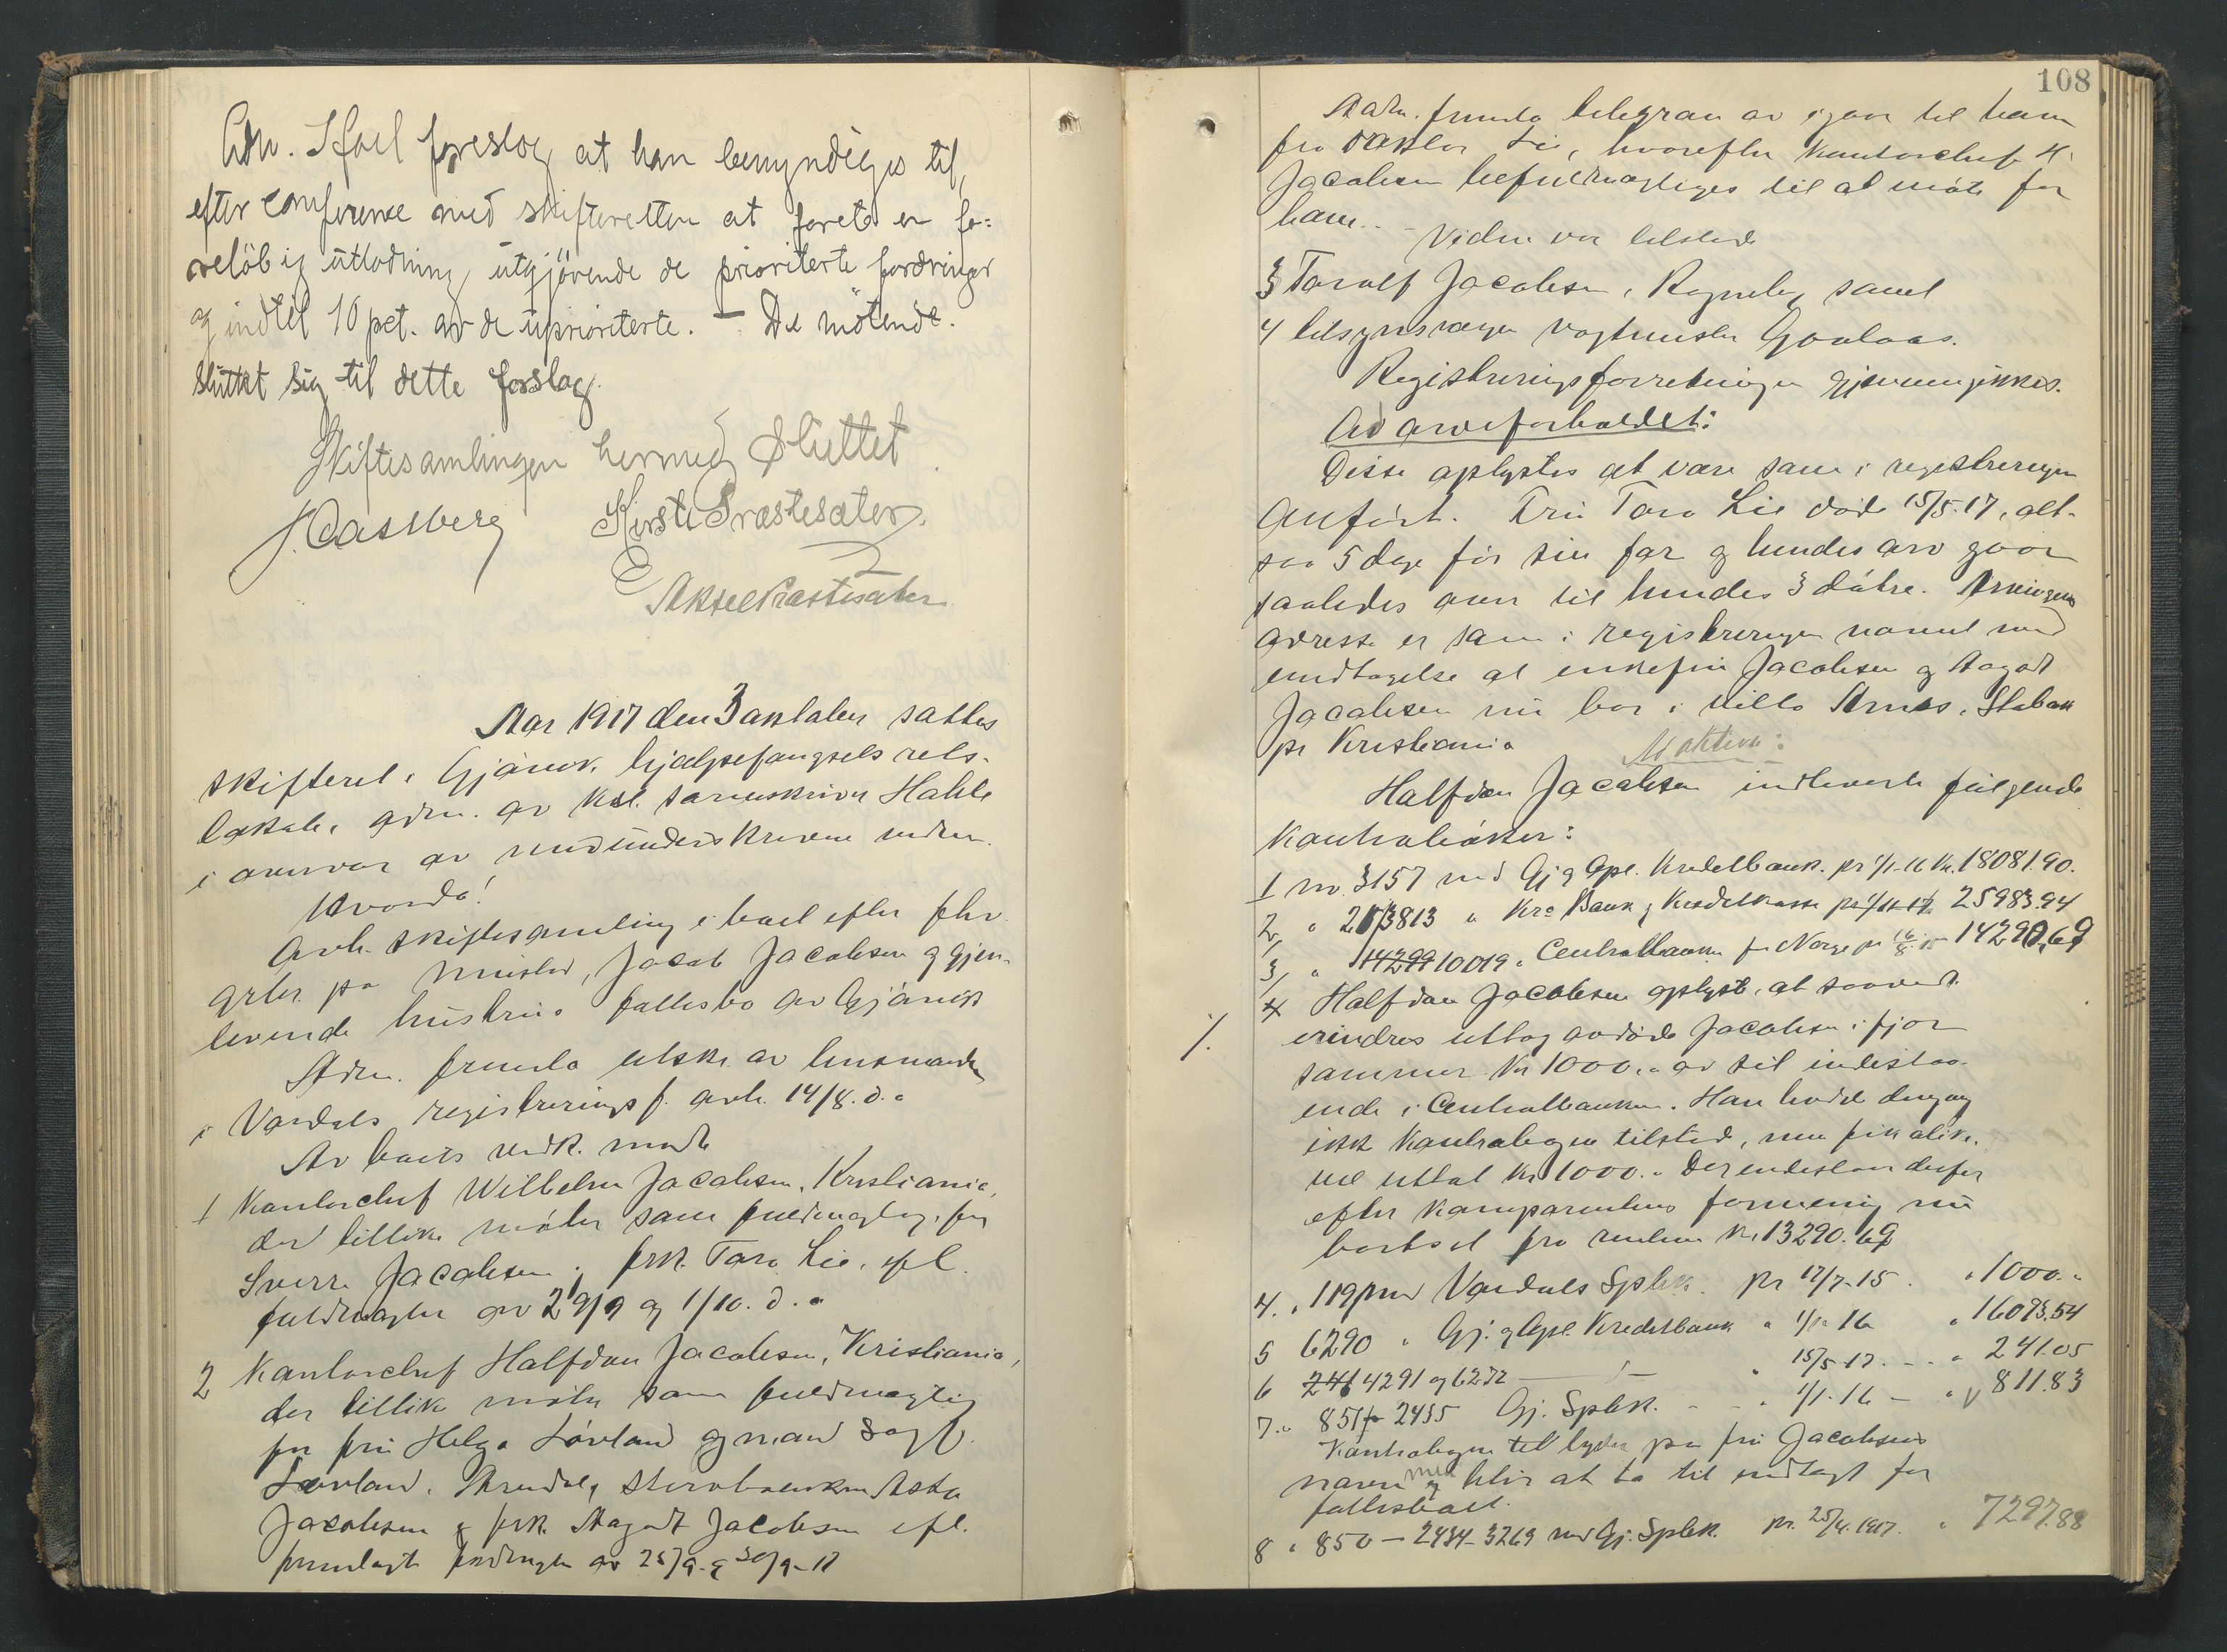 Adv. foreslog at han bemyndiges til,
efter conferense med skifteretten at foreta en fo-
reløbig utlodning, utgjørende de prioriterte fordringer
og indtil 10 pct. av de uprioriterte. — De møtende
sluttet sig til dette forslag.
Skiftesamlingen hermed sluttet.
J. Castberg Kirsti Præstesæter
Aksel Præstesæter
Aar 1917 den 3 oktober sattes
skifteret i Gjøviks hjælpefængsels rets-
lokale, adm. av kst. sorenskriver
i nærvær av medunderskrevne vidner.
Hvorda!
avh. skiftesamling i boet efter fhv.
paa Mustad, Jacob Jacobsen og gjen-
levende hustrus fællesbo av Gjøvik
Adm. fremla utskr. av lensmanden
i Vardals registreringsf. avh. 14/8. d. a
Av boets vedk. møtte
1 Kontorchef Wilhelm Jacobsen, Kristiania,
der tillike møter som fuldmægtig for
Sverre Jacobsen, frk. Tora Lie, ifl.
fuldmagter av 29/9 og 1/10. d. a
2 Kontorchef Halfdan Jacobsen, Kristiania,
der tillike møter som fuldmægtig
for fru Helga Løvland og mand
Løvland, Arendal, Asta
Jacobsen og frk. Aagodt Jacobsen ifl.
fremlagte fuldmagter av 25/9 - og 30/9 - 17
108
Adm. fremla telegram av igaar til ham
fra Lie, hvorefter kontorchef H.
Jacobsen befuldmægtiges til at møte for
ham. - Videre var tilstede
3 Toralf Jacobsen, samt
4 tilsynsværge vagtmester Gaalaas.
Registreringsforretningen gjennemgikkes.
Ad arveforholdet:
Disse oplystes at være som i registreringen
anført. Fru Tora Lie døde 15/5. 17, alt-
saa 5 dage før sin far og hendes arv gaar
saaledes over til hendes 3 døtre. Arvingenes
adresse er som i registreringen nævnt med
undtagelse at enkefru Jacobsen og Aagodt
Jacobsen nu bor i villa Arnes, Stabæk
pr Kristiania
Aktiva:
Halfdan Jacobsen indleverte følgende
kontrabøker:
1 nr. 3157 med Gj. og Opl. Kreditbank. pr 1/1-16 Kr. 18081.90.
2, " 3813 " Kra Bank og Kreditkasse 25983.94
3, " 10019 " Centralbanken for Norge pr 16/8. 15 14290,69
Halfdan Jacobsen oplyste, at saavidt
erindres uttog avdøde Jacobsen i fjor
sommer Kr 1000.- av sit indestaa-
ende i Centralbanken. Han hadde dengang
ikke kontrabogen tilstede, men fik alike-
vel uttat Kr 1000.- Der indestaar derfor
efter komparentens formening nu
bortset fra renten Kr 13290.69
4. " 119 med Vardals Spbk. pr 17/7-15. " 1000.-
5 6290 " Gj. og Opl. Kreditbank " 1/1 16 " 16093.54
6 4291 og 6272 — " — " 15/5-17. - - " 241.05
7. " 851 - 2435 Gj. Spbk. - - " 1/1-16 - " 811.83
Kontrabogen lyder paa fru Jacobsens
navn men blir at ta til indtægt for
fællesboet.
8 " 850 - 2434 - 3269 ved Gj. Spbk. pr. 25/4. 1917. " 7297.88